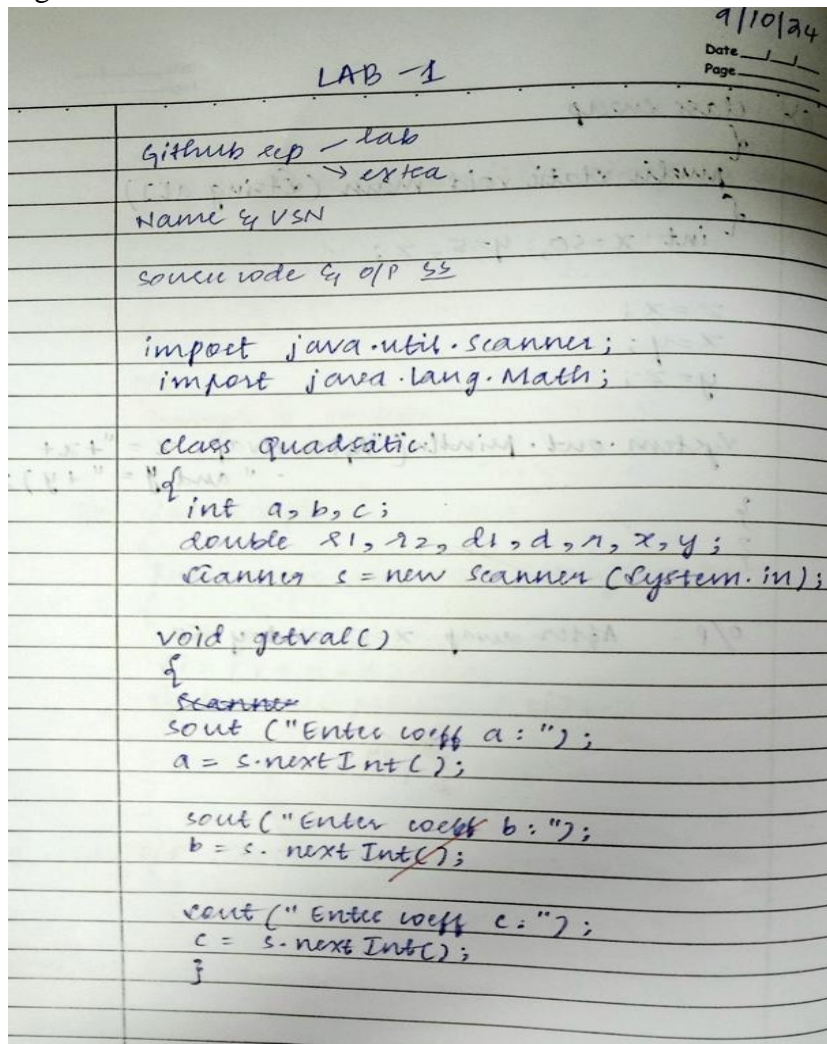 9/10/24
Date
Page
LAB - 1
Github rep - lab
→ extra
Name & USN
Source code & O/P SS
import java.util.Scanner;
import java.lang.Math;
class Quadratic
{
int a, b, c;
double r1, r2, d1, d, n, x, y;
Scanner s = new Scanner (System.in);
void getval()
{
Scanner
sout ("Enter coeff a : ");
a = s.nextInt();
sout ("Enter coeff b : ");
b = s. nextInt();
sout (" Enter coeff c : ");
c = s.nextInt();
}